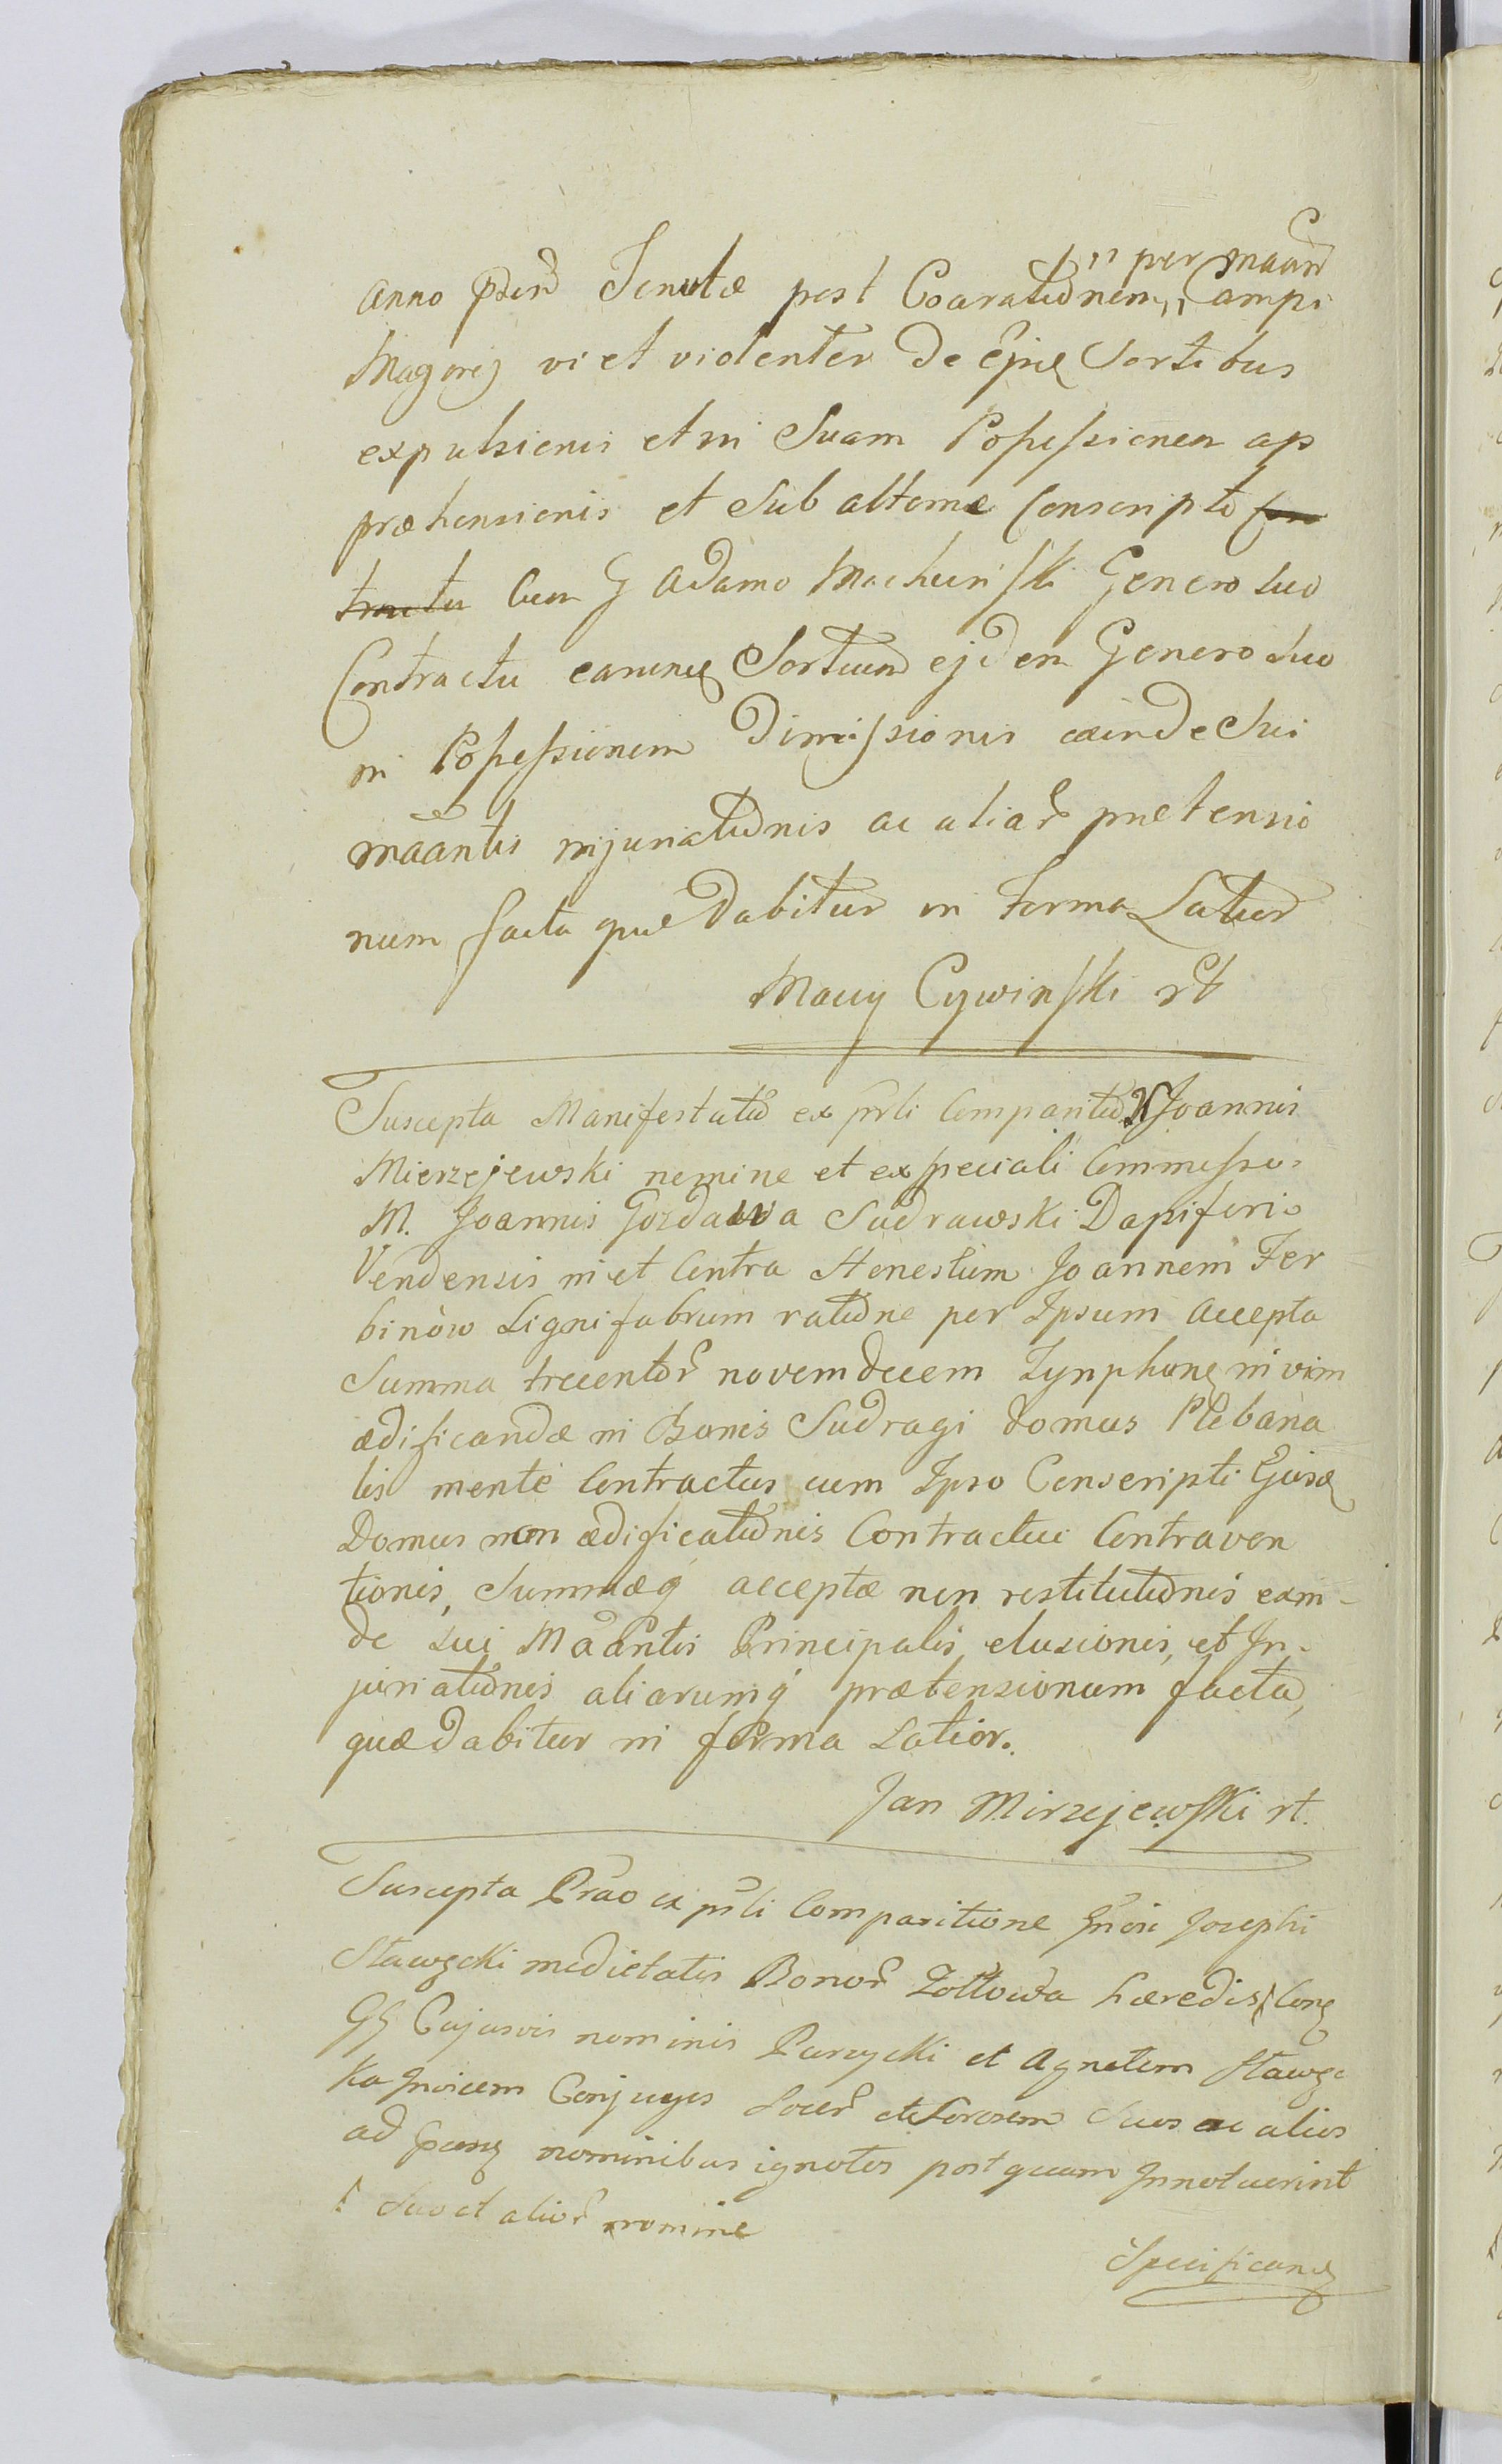 per maan̄
Anno Tenutæ post Coaratiōnem,, Campi
Magorej vi et violenter de ejus Sortibus
expulsionis et in Suam Possessionem ap
præhensionis et Sub alterna Conscripto Con
tractu Cum G Adamo Machciński Genero Suo
Contractu earunq Sortium ejdem Genero Suo
in Possessionem Dimissionis exinde Sui
māantis injuriatiōnis ac aliar̄ prætensio
num facta quæ Dabitur in Forma Latior
Maciy Cywinski rt
Suscepta Manifestatiō ex prli Comparitiō N Joannis
Mierzejewski nomine et ex speciali Commisso
M. Joannis Gozdawa Sudrawski Dapiferi
Vendensis in et Contra Honestum Joannem Fer
binòw Lignifabrum ratiōne per Ipsum accepta
Summa trecentor̄ novemdecem Tynphonq in vim
ædificandæ in Bonis Sudragi domus Plebana
lis mente Contractus cum Ipso Conscripti Ejusq
Domus non ædificatiōnis Contractui Contraven
tionis, Summæq acceptæ non restitutiōnis exin-
de sui Māantis Principalis elusionis, et In-
juriatiōnis aliarumq prætensionum facta,
quæ Dabitur in forma Latior.
Jan Mirzejewski rt.
Suscepta Prāo ex prli Comparitione Gn̄osi Josephi
Stawgcki medietatis Bonor̄ Zołtowa hæredis Conq
GG Cujusvis nominis Purzycki et Agnetem Stawgc
ka Invicem Conjuges Socer̄ et Sororem Suos ac alios
ad nominibus ignotos postquam Innotuerint
Suo et alior̄ nomine
Specificanq